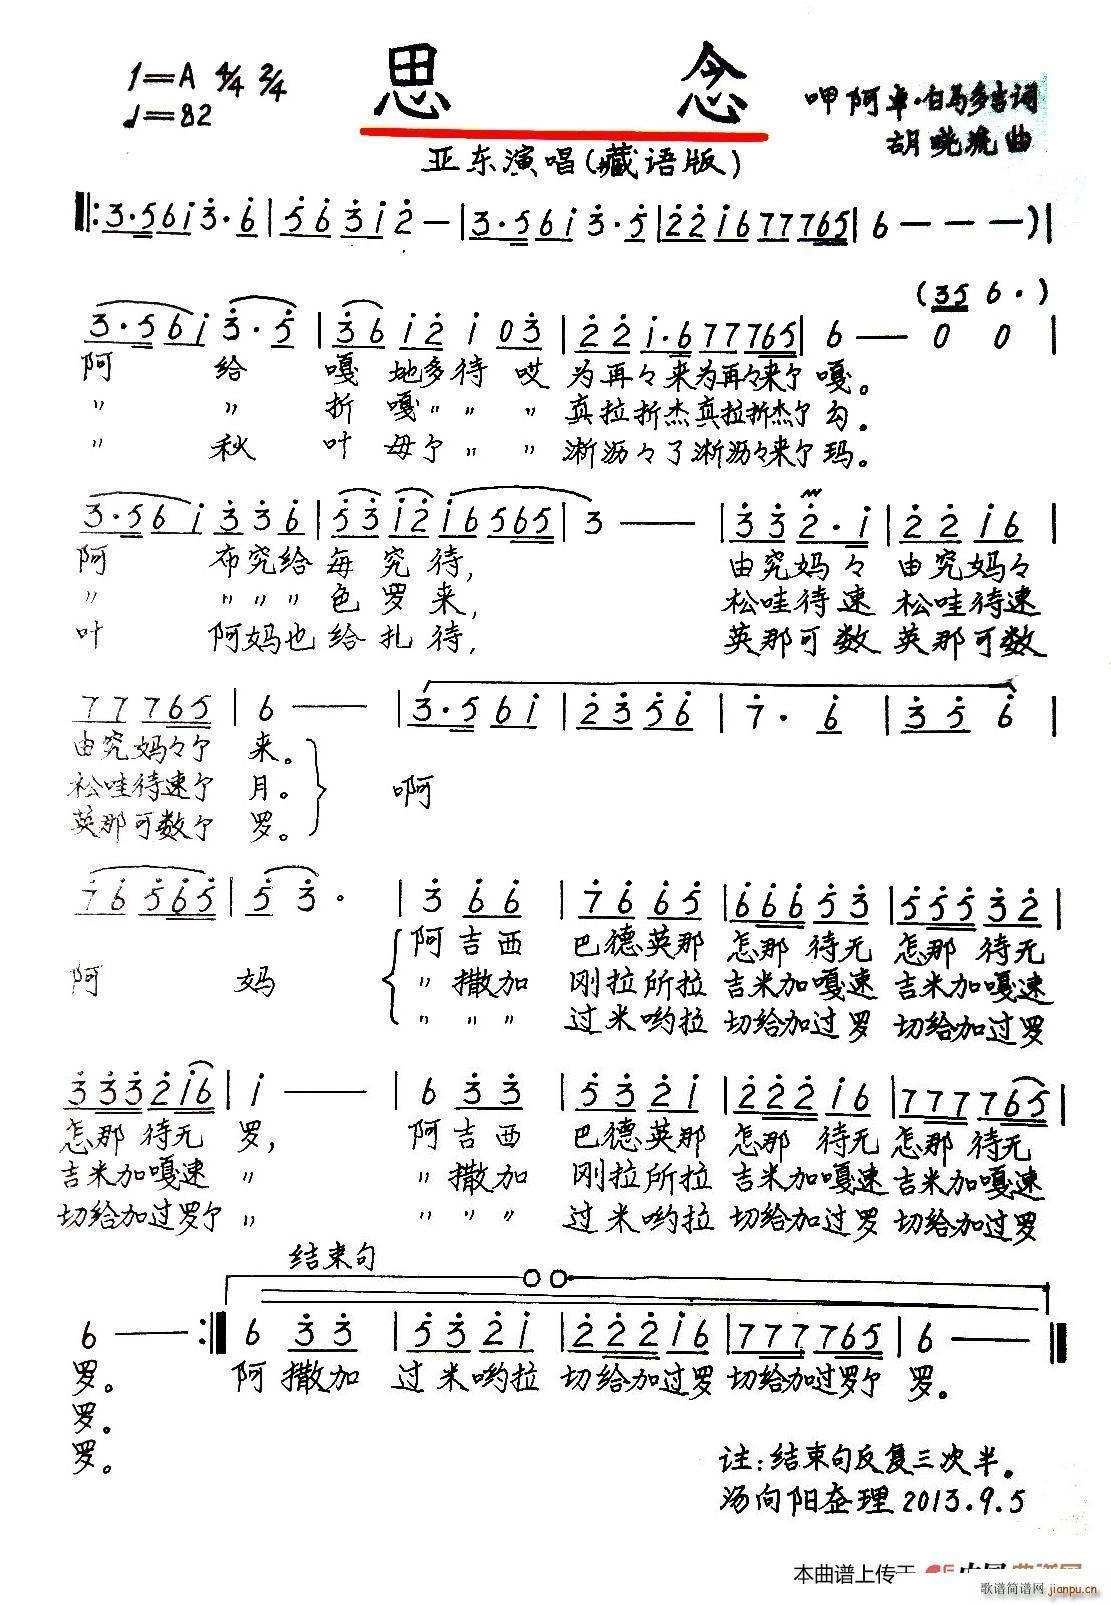 思 念
1=A 4/4 2/4
♩=82
呷阿卓·白马多吉词
胡晓流曲
亚东演唱(藏语版)
‖:3·56i3·6|563i2—|3·56i3·5|22i6777765|6———)|
(35 6·)
3·56i3·5|36i2i03|22i·6777765|6—00|
阿 给 嘎 地多待 哎 为再々来为再々来尔 嘎。
〃 〃 折 嘎〃 〃 〃 真拉折杰真拉折杰尔 勾.
〃 秋 叶 母尔〃 〃 淅沥々了淅沥々来尔 玛。
3·56i336|53i2i6565|3——|332·i|22i6|
阿 布究给每究待, 由究妈々 由究妈々
〃 〃〃〃色罗来, 松哇待速 松哇待速
叶 阿妈也给扎待, 英那可数 英那可数
77765|6——|3·56i|2356|7·6|356|
由究妈々尔 来。
松哇待速尔 月。 啊
英那可数尔 罗。
76565|53·|366|7665|66653|55532|
阿吉西 巴德英那 怎那 待无 怎那 待无
阿 妈 〃撒加 刚拉所拉 吉米加嘎速 吉米加嘎速
〃〃〃 过米哟拉 切给加过罗 切给加过罗
3332i6|i——|633|532i|222i6|777765|
怎那 待无 罗, 阿吉西 巴德英那 怎那 待无 怎那 待无
吉米加嘎速 〃 〃撒加 刚拉所拉 吉米加嘎速 吉米加嘎速
切给加过罗尔 〃 〃〃〃 过米哟拉 切给加过罗 切给加过罗
结束句
6——:‖633|532i|222i6|777765|6——‖
罗。 阿撒加 过米哟拉 切给加过罗 切给加过罗尔 罗。
罗。
罗。
注:结束句反复三次半。
汤向阳整理2013.9.5
本曲谱上传于
歌谱简谱网
jianpu.cn